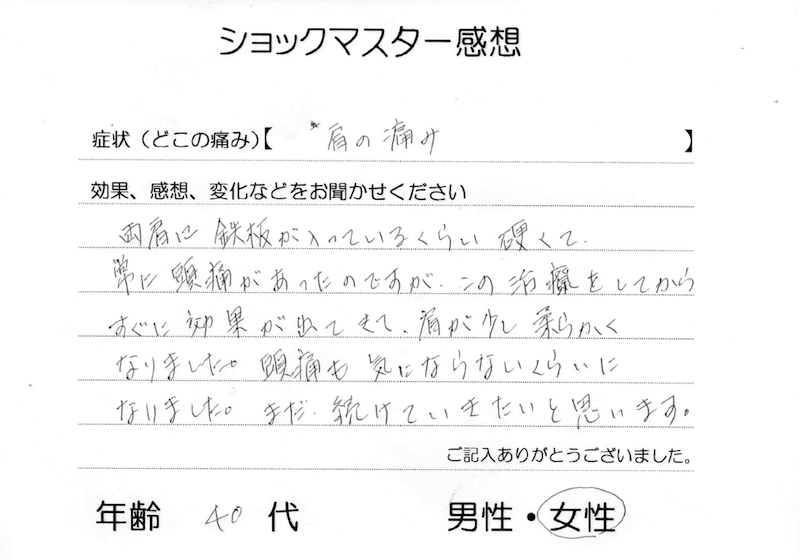 ショックマスター感想
症状（どこの痛み）【 肩の痛み 】
効果、感想、変化などをお聞かせください
両肩に鉄板が入っているくらい硬くて、
常に頭痛があったのですが、この治療をしてから
すぐに効果が出てきて、肩が少し柔らかく
なりました。頭痛も気にならないくらいに
なりました。まだ、続けていきたいと思います。
ご記入ありがとうございました。
年齢 40 代 男性・女性